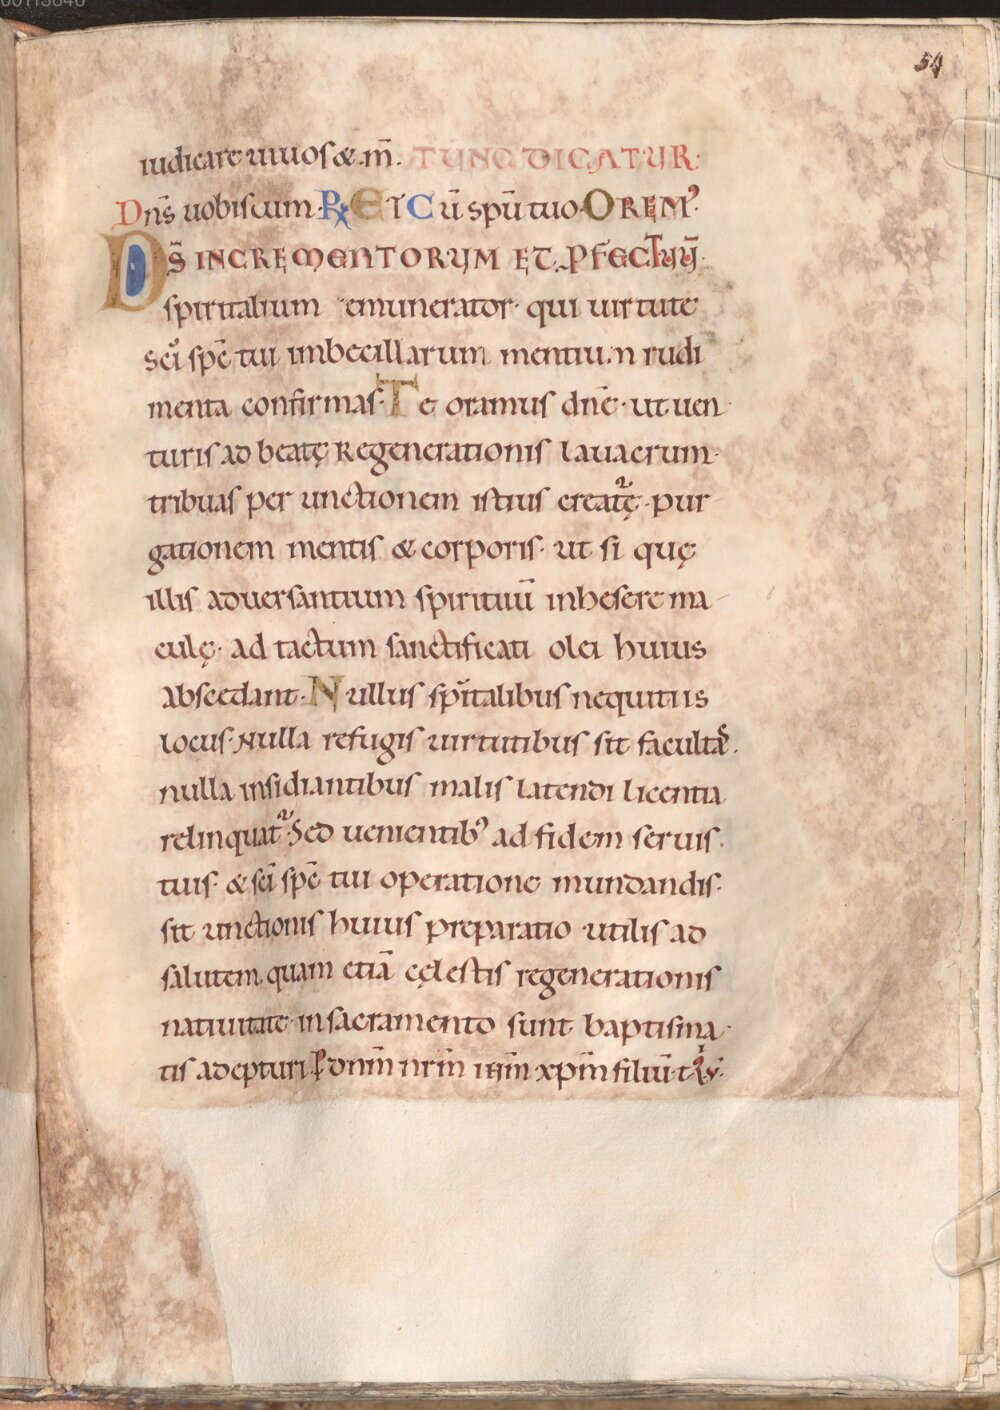 54
iudicare uiuos & m̄. TUNC DICATUR.
Dn̄s uobiscum. R̸ ET Cū spū tuo. OREM᷒.
Ds̄ INCREMENTORUM ET PFECTUŪ
spiritalium emunerator. qui uirtute
sc̄i spē tui imbecillarum mentium rudi
menta confirmas. Te oramus dn̄e. ut uen
turis ad beatę Regenerationis lauacrum.
tribuas per unctionem istius creatᷣę. pur
gationem mentis & corporis. ut si quę
illis aduersantium spirituū inhesere ma
culę. ad tactum sanctificati olei huius
abscedant. Nullus spītalibus nequitiis
locus. Nulla refugis uirtutibus sit facultaˢ.
nulla insidiantibus malis latendi licentia
relinquatᷣ. Sed uenientib᷒ ad fidem seruis.
tuis. & sc̄i spē tui operatione mundandis.
sit unctionis huius preparatio utilis ad
salutem. quam etiā cęlestis regenerationis
natiuitate. in sacramento sunt baptisma.
tis adepturi. P̱ dnm̄ nrm̄ ihm̄ xpm̄ filiū. t